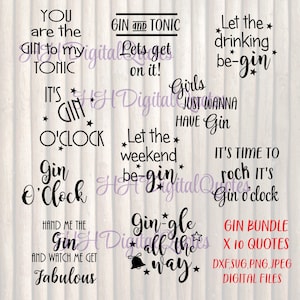 YOU
are the
GIN to my
TONIC
GIN and TONIC
Lets get
on it!
Let the
drinking
be-gin
IT'S
GIN
O'CLOCK
Girls
JUST WANNA
HAVE Gin
Let the
weekend
be-gin
Gin
O'Clock
IT'S TIME TO
rock IT'S
Gin o'clock
HAND ME THE
Gin
AND WATCH ME GET
Fabulous
Gin-gle
all the
way
GIN BUNDLE
X 10 QUOTES
DXF,SVG,PNG,JPEG
DIGITAL FILES
HHDigitalQuotes
HHDigitalQuotes
HHDigitalQuotes
HHDigitalQuotes